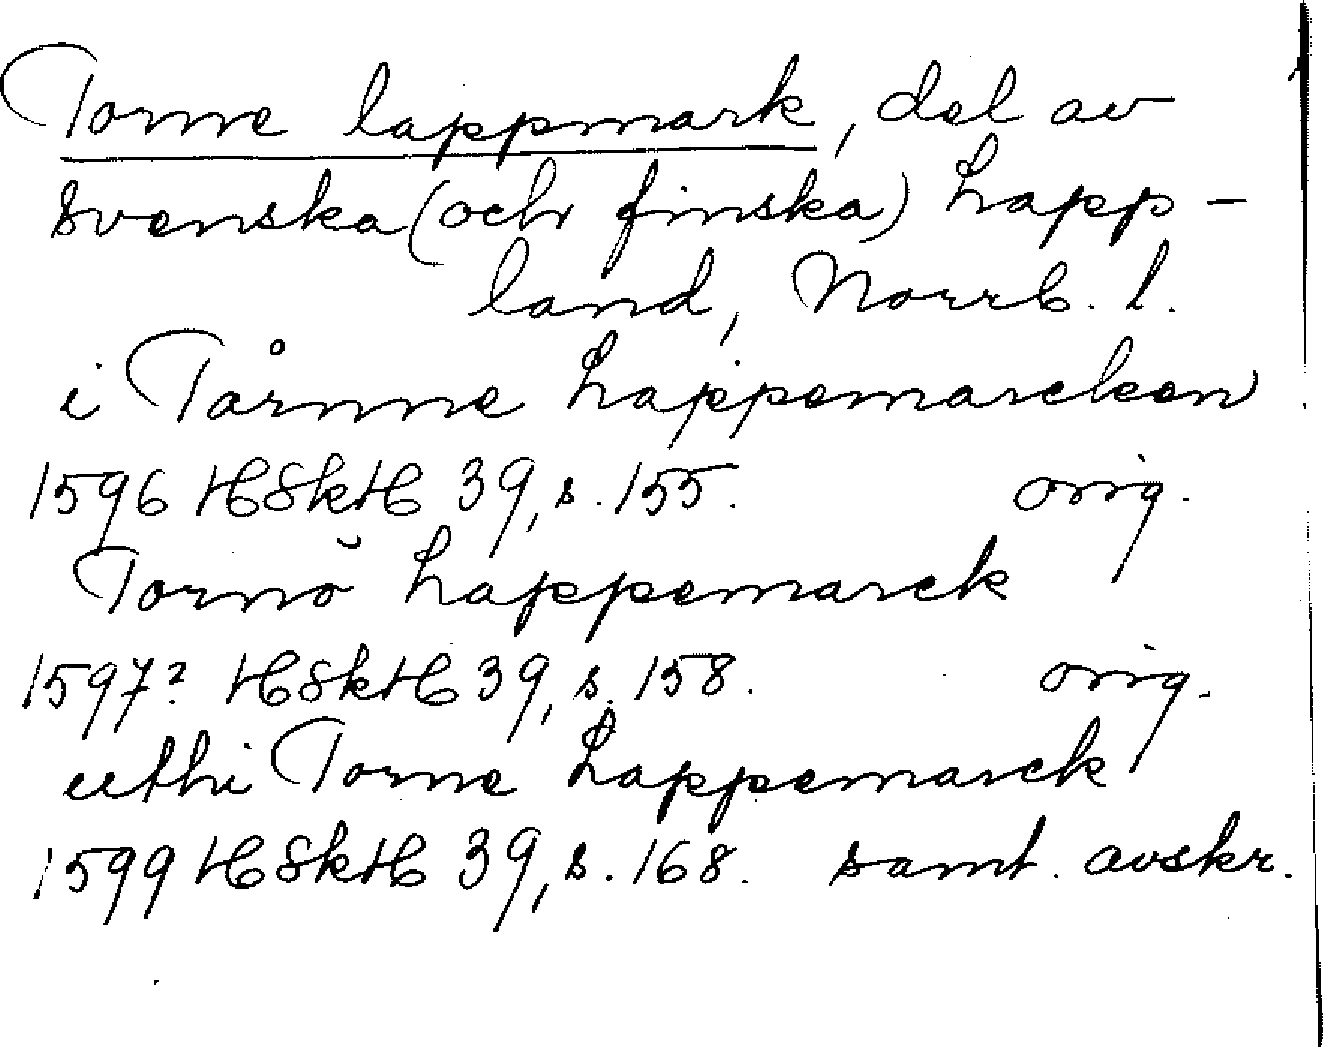 Torne lappmark, del av
svenska (och finska) Lapp-
land, Norrb. l.
i Tårnne Lappemarcken
1596 HSkH 39, s. 155. orig.
Tornö Lappemarck
1597? HSkH 39, s. 158. orig.
uthi Torne Lappemarck
1599 HSkH 39, s. 168. samt. avskr.